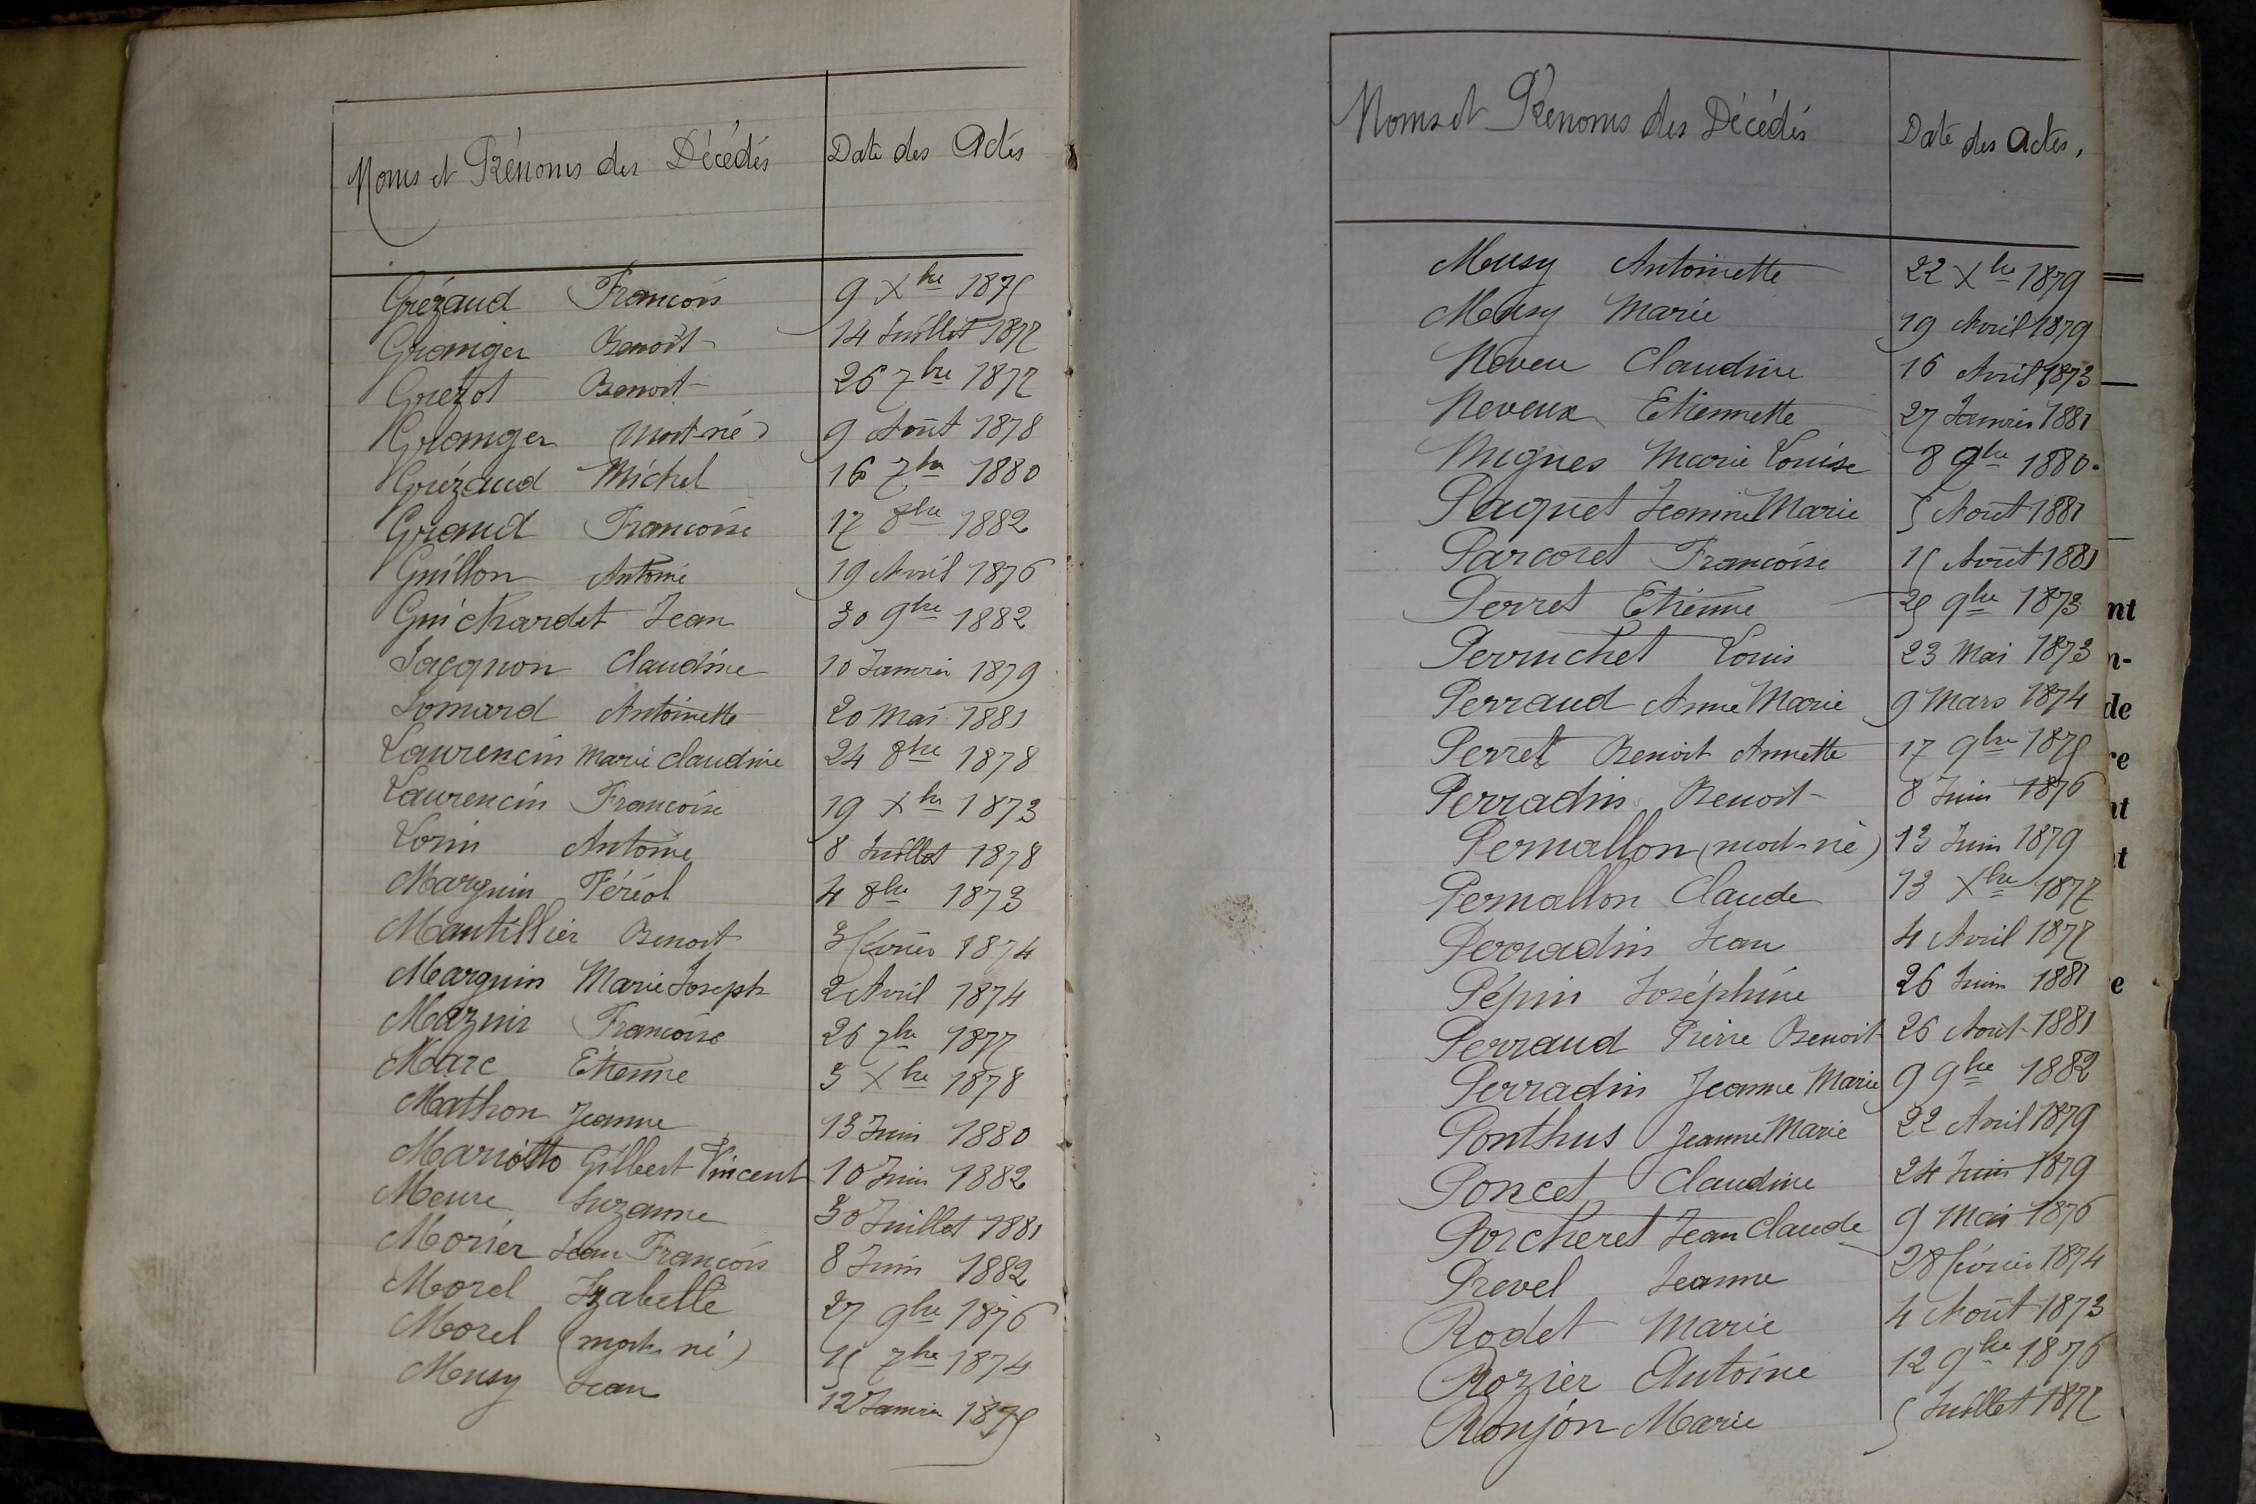 Noms et Prénoms des Décédés Date des Actes
Grézaud François 9 Xbre 1875
Granger Benoît 14 Juillet 1877
Grezot Benoit 26 7bre 1877
Granger (mort-né) 9 Août 1878
Grézaud Michel 16 7bre 1880
Grand Françoise 17 8bre 1882
Guillon Antoine 19 Avril 1876
Guichardet Jean 30 9bre 1882
Jacquon Claudine 10 Janvier 1879
Jomard Antoinette 20 Mai 1881
Laurencin Marie Claudine 24 8bre 1878
Laurencin Françoise 19 Xbre 1873
Lorin Antoine 8 Juillet 1878
Marguin Féréol 4 8bre 1873
Mantillier Benoit 3 février 1874
Marguin Marie Joseph 2 Avril 1874
Mazuir Françoise 26 7bre 1877
Marc Etienne 3 Xbre 1878
Mathon Jeanne 13 Juin 1880
Mariotto Gilbert Vincent 10 Juin 1882
Meure Suzanne 30 Juillet 1881
Morier Jean François 8 Juin 1882
Morel Izabelle 27 9bre 1876
Morel (mort-né) 15 7bre 1874
Meusy Jean 12 Janvier 1875
Noms et Prénoms des Décédés Date des Actes.
Meusy Antoinette 22 Xbre 1879
Meusy Marie 19 Avril 1879
Neveu Claudine 16 Avril 1873
Neveux Etiennette 27 Janvier 1881
Nugues Marie Louise 8 9bre 1880.
Paquet Jeanne Marie 5 Août 1881
Parcoret Françoise 15 Août 1881
Perret Etienne 25 9bre 1873
Perruchet Louis 23 Mai 1873
Perraud Anne Marie 9 Mars 1874
Perret Benoit Annette 17 9bre 1875
Perradin Benoit 8 Juin 1876
Pernallon (mort-né) 13 Juin 1879
Pernallon Claude 13 Xbre 1877
Perradin Jean 4 Avril 1877
Pépin Joséphine 26 Juin 1881
Perraud Pierre Benoit 26 Août 1881
Perradin Jeanne Marie 9 9bre 1882
Ponthus Jeanne Marie 22 Avril 1879
Poncet Claudine 24 Juin 1879
Porcheret Jean Claude 9 Mai 1876
Prevel Jeanne 28 février 1874
Rodet Marie 4 Août 1873
Rozier Antoine 12 9bre 1876
Ronjon Marie 5 Juillet 1877
nt
n-
de
re
nt
et
e